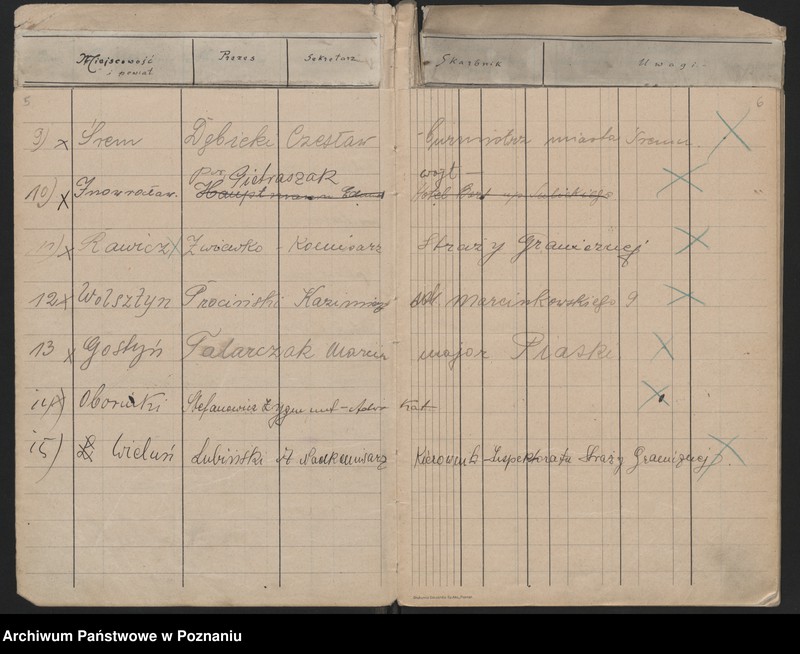 Miejscowość i powiat Prezes Sekretarz Skarbnik Uwagi
5 6
9) x Śrem Dębicki Czesław Burmistrz miasta Śremu.
10) x Inowrocław. Pietraszak wójt —
11) x Rawicz x Żwówko - Komisarz Straży Granicznej
12 x Wolsztyn Prociński Kazimierz ul. Marcinkowskiego 9
13 x Gostyń Tatarczak Marcin major Piaski.
14) Oborniki Stefanowicz Zygmunt - Adwokat
15) Wieluń Lubiński Nadkomisarz Kierownik Inspektoratu Straży Granicznej
Archiwum Państwowe w Poznaniu